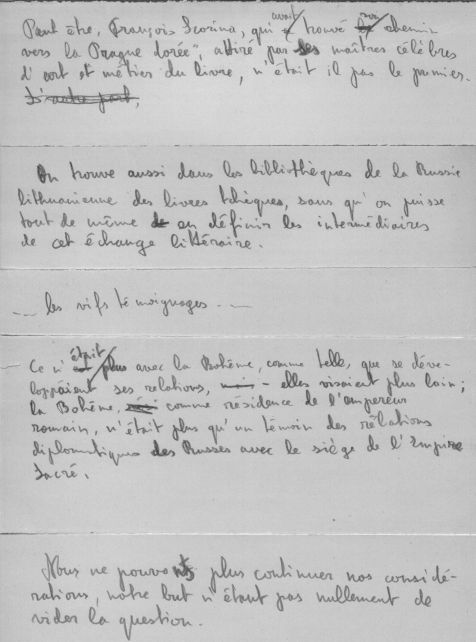 Peut être, François Scorina, qui avait trouvé son chemin
vers la Prague dorée", attiré par les maîtres célèbres
d'art et métiers du livre, n'était il pas le premier.
D'autre part,
On trouve aussi dans les bibliothèques de la Russie
lithuanienne des livres tchèques, sans qu'on puisse
tout de même en définir les intermédiaires
de cet échange littéraire.
... les vifs témoignages ...
Ce n'était plus avec la Bohême, comme telle, que se déve-
loppaient ses relations, - elles visaient plus loin;
la Bohême, comme résidence de l'empereur
romain, n'était plus qu'un témoin des rélations
diplomatiques des Russes avec le siège de l'Empire
Sacré.
Nous ne pouvons plus continuer nos considé-
rations, notre but n'étant pas nullement de
vider la question.